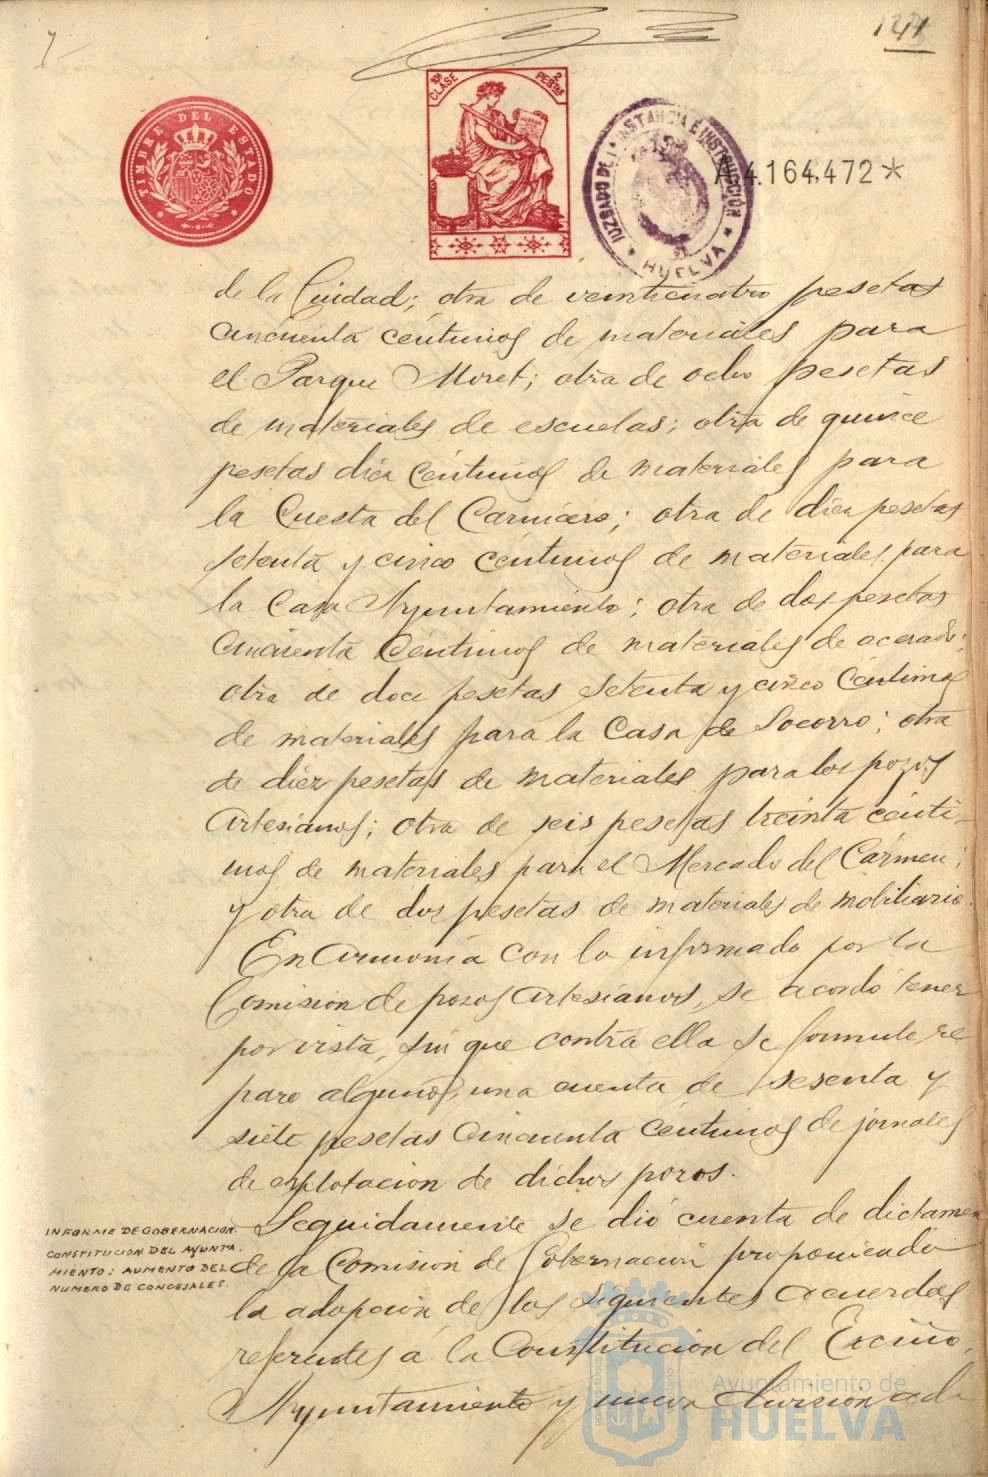 141
TIMBRE DEL ESTADO
10ª CLASE
2 PESETAS
JUZGADO DE 1ª INSTANCIA É INSTRUCCIÓN
HUELVA
A 4.164,472 *
de la Ciudad; otra de veinticuatro pesetas
cincuenta céntimos de materiales para
el Parque Moret; otra de ocho pesetas
de materiales de escuelas; otra de quince
pesetas diez céntimos de materiales para
la Cuesta del Carnicero; otra de diez pesetas
setenta y cinco céntimos de materiales para
la Casa Ayuntamiento; otra de dos pesetas
cincuenta céntimos de materiales de acerado;
otra de doce pesetas setenta y cinco céntimos
de materiales para la Casa de Socorro; otra
de diez pesetas de materiales para los pozos
Artesianos; otra de seis pesetas treinta cénti-
mos de materiales para el Mercado del Cármen;
y otra de dos pesetas de materiales de mobiliario.
En armonía con lo informado por la
Comision de pozos Artesianos, se acordó tener
por vista, sin que contra ella se formule re
paro alguno, una cuenta de sesenta y
siete pesetas cincuenta céntimos de jornales
de explotacion de dichos pozos.
INFORME DE GOBERNACION.
CONSTITUCION DEL AYUNTA.
MIENTO: AUMENTO DEL
NUMERO DE CONCEJALES.
Seguidamente se dió cuenta de dictamen
de la Comision de Gobernacion proponiendo
la adopcion de los siguientes acuerdos
referentes á la Constitucion del Excmo.
Ayuntamiento y nueva division
Ayuntamiento de
HUELVA